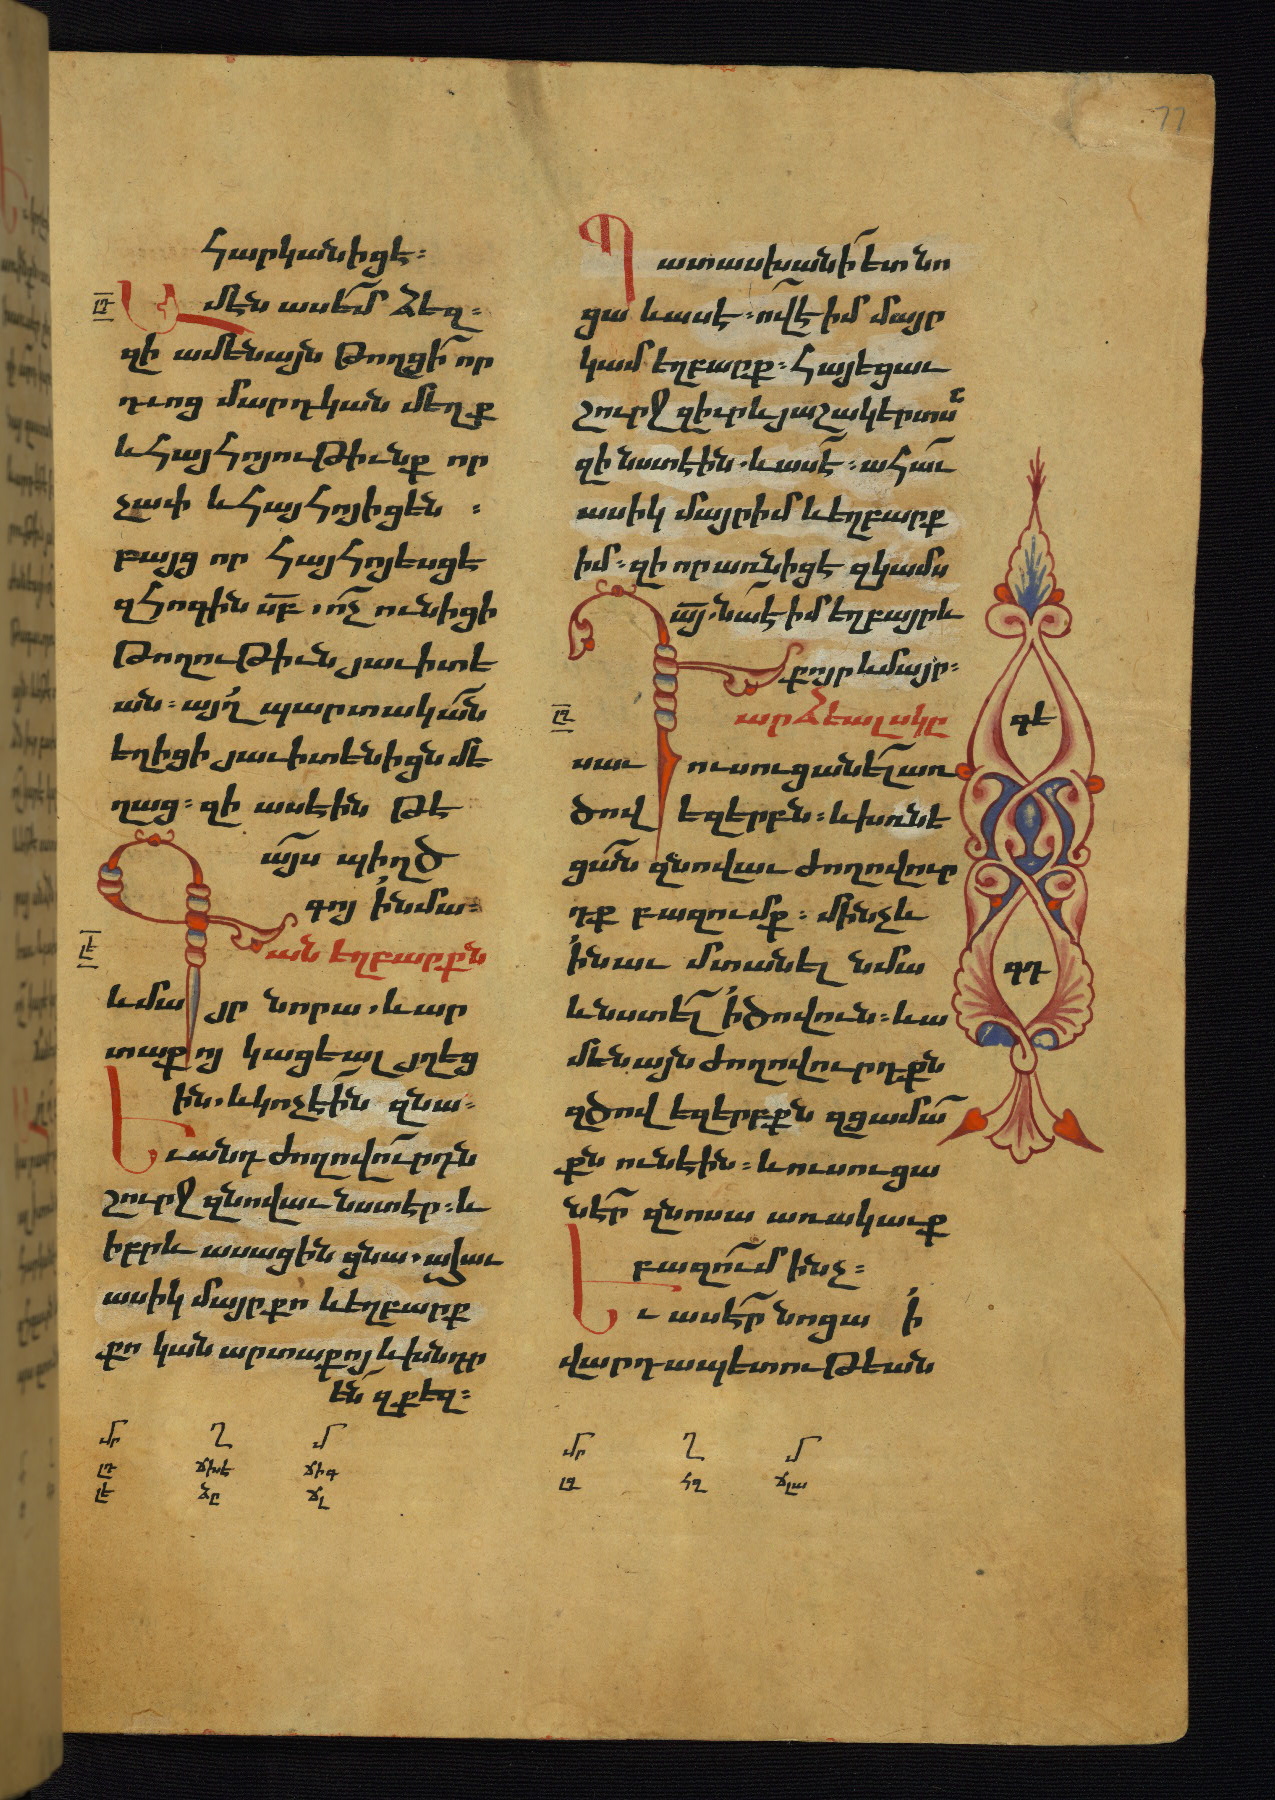 77
հարկանիցէ։
լդ
Ամէն ասեմ ձեզ։
զի ամենայն թողցի որ
դւոց մարդկան մեղք
և հայհոյութիւնք որ
չափ և հայհոյիցեն ։
բայց որ հայհոյեսցէ
զհոգին սբ, ոչ ունիցի
թողութիւն յաւիտե
ան։ այլ պարտական
եղիցի յաւիտենիցն մե
ղաց։ զի ասէին թէ
այս պիղծ
գոյ ինմա։
լե
Գան եղբարքն
և մայր նորա, և ար
տաքոյ կացեալ յղեց
ին. և կոչէին զնա։
Եւ անդ ժողովուրդն
շուրջ զնովաւ նստէր։ և
իբրև ասացին ցնա, ահաւ
ասիկ մայր քո և եղբարք
քո կան արտաքոյ և խնդր
են զքեզ։
Պատասխանի ետ նո
ցա և ասէ. ով է իմ մայր
կամ եղբարք։ հայեցաւ
շուրջ զիւրև յաշակերտսն
զի նստէին. և ասէ. ահաւ
ասիկ մայր իմ և եղբարք
իմ։ զի որ առնիցէ զկամս
այ, նա է իմ եղբայր և
քոյր և մայր։
լզ
Դարձեալ սկը
սաւ ուսուցանել առ
ծով եզերբն։ և խռնե
ցան զնովաւ ժողովուր
դք բազումք։ մինչև
ինաւ մտանել նմա
և նստել իծովուն։ և ա
մենայն ժողովուրդքն
զծով եզերբքն զցամա
քն ունէին։ և ուսուցա
նէր զնոսա առակաւք
բազում ինչ։
Եւ ասէր նոցա ի
վարդապետութեան
գե
գդ
մր ղ մ
լդ ճխե ճիգ
լե ձը ճլ
մր ղ մ
լզ հզ ճլա